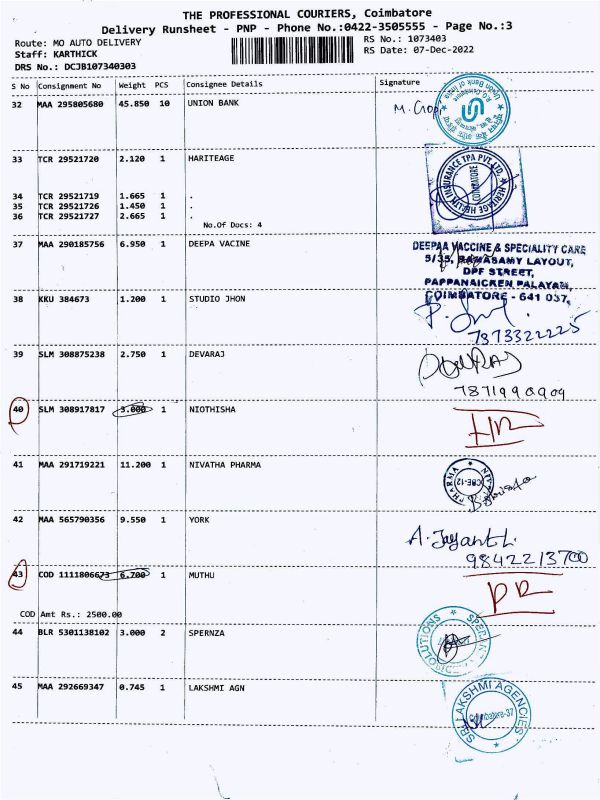 THE PROFESSIONAL COURIERS, Coimbatore
Delivery Runsheet - PNP - Phone No.:0422-3505555 - Page No.:3
Route: MO AUTO DELIVERY
RS No.: 1073403
Staff: KARTHICK
RS Date: 07-Dec-2022
DRS No.: DCJB107340303
S No Consignment No Weight PCS Consignee Details Signature
32 MAA 295805680 45.850 10 UNION BANK
M. Gopi
33 TCR 29521720 2.120 1 HARITEAGE
HERITAGE HEALTH INSURANCE TPA PVT. LTD.
COIMBATORE
34 TCR 29521719 1.665 1 .
35 TCR 29521726 1.450 1 .
36 TCR 29521727 2.665 1 .
No.Of Docs: 4
37 MAA 290185756 6.950 1 DEEPA VACINE
DEEPAA VACCINE & SPECIALITY CARE
5/35, RAMASAMY LAYOUT,
DPF STREET,
PAPPANAICKEN PALAYAM,
COIMBATORE - 641 037.
38 KKU 384673 1.200 1 STUDIO JHON
7373322225
39 SLM 308875238 2.750 1 DEVARAJ
40 SLM 308917817 3.000 1 NIOTHISHA
41 MAA 291719221 11.200 1 NIVATHA PHARMA
PHARMA
CBE-12
42 MAA 565790356 9.550 1 YORK
9842213700
43 COD 1111806673 6.700 1 MUTHU
COD Amt Rs.: 2500.00
44 BLR 5301138102 3.000 2 SPERNZA
45 MAA 292669347 0.745 1 LAKSHMI AGN
SRI LAKSHMI AGENCIES
Coimbatore-37